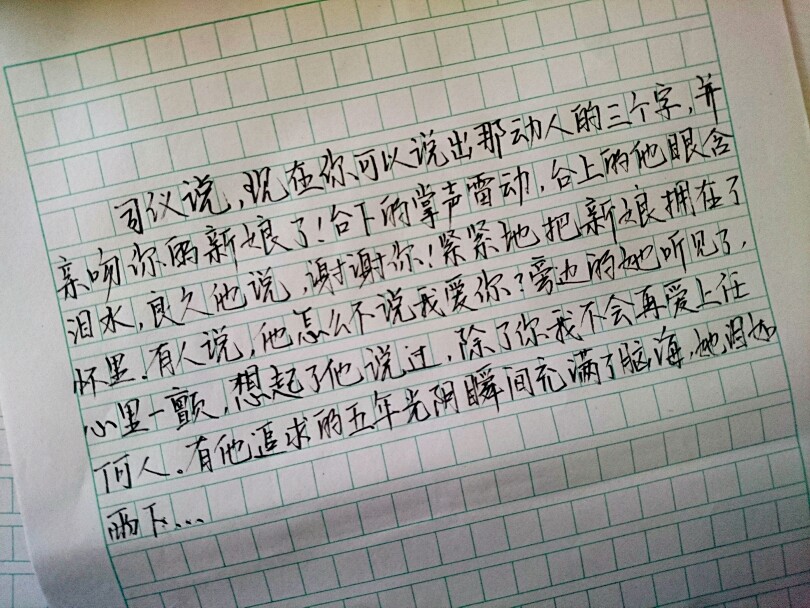 司仪说，现在你可以说出那动人的三个字，并
亲吻你的新娘了！台下的掌声雷动，台上的他眼含
泪水，良久他说，谢谢你！紧紧地把新娘拥在了
怀里。有人说，他怎么不说我爱你？旁边的她听见了，
心里一颤，想起了他说过，除了你我不会再爱上任
何人。有他追求的五年光阴瞬间充满了脑海，她泪如
雨下...